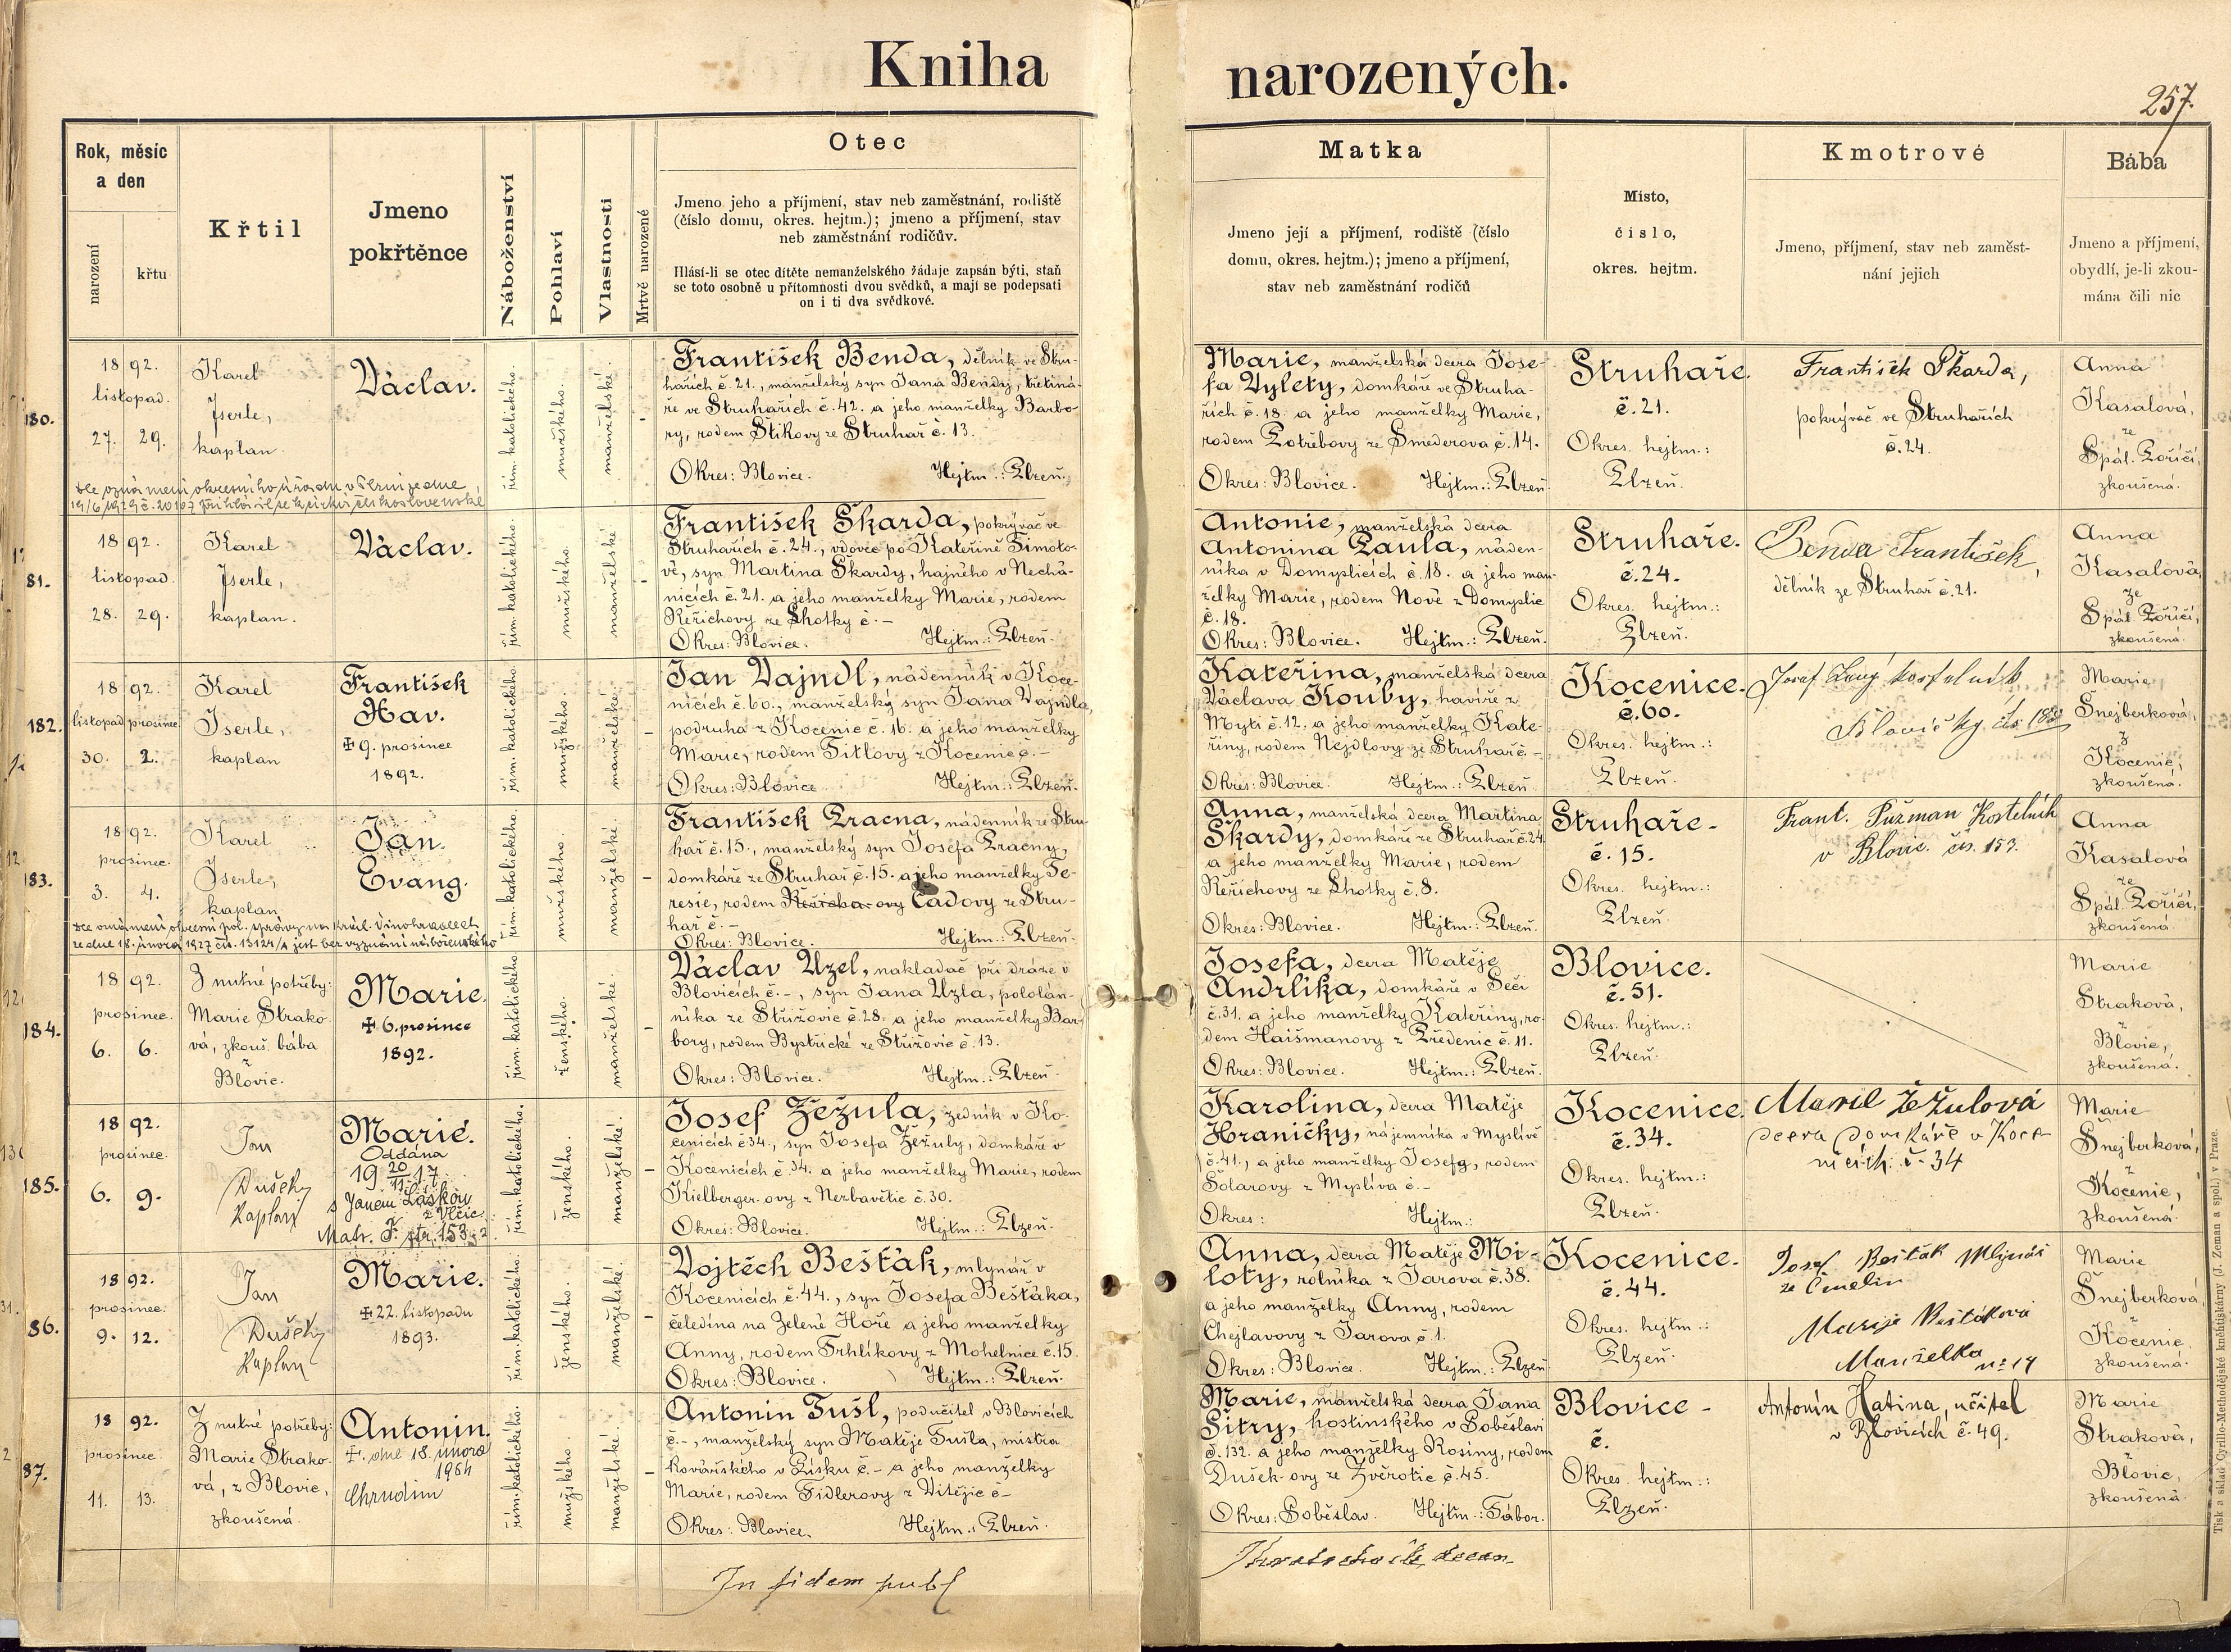 Kniha narozených.
257.
Rok, měsíc
a den
narození
křtu
Křtil
Jmeno
pokřtěnce
Náboženství
Pohlaví
Vlastnosti
Mrtvě narozené
Otec
Jmeno jeho a příjmení, stav neb zaměstnání, rodiště
(číslo domu, okres. hejtm.); jmeno a příjmení, stav
neb zaměstnání rodičův.
Hlásí-li se otec dítěte nemanželského žádaje zapsán býti, staň
se toto osobně u přítomnosti dvou svědků, a mají se podepsati
on i ti dva svědkové.
Matka
Jmeno její a příjmení, rodiště (číslo
domu, okres. hejtm.); jmeno a příjmení,
stav neb zaměstnání rodičů
Místo,
číslo,
okres. hejtm.
Kmotrové
Jmeno, příjmení, stav neb zaměst-
nání jejich
Bába
Jmeno a příjmení,
obydlí, je-li zkou-
mána čili nic
180.
1892.
listopad.
27. 29.
Karel
Iserle,
kaplan.
Václav.
řím. katolického.
mužského.
manželské.
-
František Benda, dělník ve Stru-
hařích č. 21., manželský syn Jana Bendy, třetiná-
ře ve Struhařích č. 42. a jeho manželky Barbo-
ry, rodem Štikovy ze Struhař č. 13.
Okres: Blovice. Hejtm.: Plzeň.
Marie, manželská dcera Jose-
fa Vylety, domkáře ve Struha-
řích č. 18. a jeho manželky Marie,
rodem Potřebovy ze Smederova č. 14.
Okres: Blovice. Hejtm.: Plzeň.
Struhaře.
č. 21.
Okres. hejtm.:
Plzeň.
František Škarda,
pokrývač ve Struhařích
č. 24.
Anna
Kasalová,
ze
Spál. Poříčí,
zkoušená.
dle oznámení okresního úřadu v
81.
1892.
listopad.
28. 29.
Karel
Iserle,
kaplan.
Václav.
řím. katolického.
mužského.
manželské
-
František Škarda, pokrývač ve
Struhařích č. 24., vdovec po Kateřině Šimoto-
vé, syn Martina Škardy, hajného v Nechá-
nicích č. 21. a jeho manželky Marie, rodem
Řeřichovy ze Lhotky č. -
Okres: Blovice. Hejtm.: Plzeň.
Antonie, manželská dcera
Antonína Paula, náden-
níka v Domyslicích č. 18. a jeho man-
želky Marie, rodem Nové z Domyslic
č. 18.
Okres: Blovice. Hejtm.: Plzeň.
Struhaře.
č. 24.
Okres. hejtm.:
Plzeň.
Benda František,
dělník ze Struhař č. 21.
Anna
Kasalová,
ze
Spál. Poříčí,
zkoušená.
182.
1892.
listopad prosinec
30. 2.
Karel
Iserle,
kaplan
František
Xav.
✝ 9. prosince
1892.
řím. katolického.
mužského.
manželské.
-
Jan Vajndl, nádenník v Koce-
nicích č. 60., manželský syn Jana Vajndla,
podruha z Kocenic č. 16. a jeho manželky
Marie, rodem Titlovy z Kocenic č. -
Okres: Blovice. Hejtm.: Plzeň.
Kateřina, manželská dcera
Václava Kouby, havíře z
Mýti č. 12. a jeho manželky Kate-
řiny, rodem Nejdlovy ze Struhař č. -
Okres: Blovice. Hejtm.: Plzeň.
Kocenice.
č. 60.
Okres. hejtm.:
Plzeň.
Josef kostelník
Marie
Šnejberková,
z
Kocenic,
zkoušená.
183.
1892.
prosinec.
3. 4.
Karel
Iserle,
kaplan.
Jan
Evang.
řím. katolického.
mužského.
manželské.
-
František Pracna, nádenník ze Stru-
hař č. 15., manželský syn Josefa Pracny,
domkáře ze Struhař č. 15. a jeho manželky Te-
resie, rodem Řeřicha-ovy Čadovy ze Stru-
hař č. -
Okres: Blovice. Hejtm.: Plzeň.
Anna, manželská dcera Martina
Škardy, domkáře ze Struhař č. 24
a jeho manželky Marie, rodem
Řeřichovy ze Lhotky č. 8.
Okres: Blovice. Hejtm.: Plzeň.
Struhaře -
č. 15.
Okres. hejtm.:
Plzeň.
Frant. Pužman Kostelník
v Blovic. čís. 153.
Anna
Kasalová
ze
Spál. Poříčí,
zkoušená
dle oznámení okresní pol. správy na Král. Vinohradech
ze dne 18. února 1927 čís. 13124/A jest bez vyznání náboženského
184.
1892.
prosinec.
6. 6.
Z nutné potřeby:
Marie Strako-
vá, zkouš. bába
z
Blovic.
Marie.
✝ 6. prosince
1892.
řím. katolického.
ženského.
manželské.
-
Václav Uzel, nakladač při dráze v
Blovicích č. -, syn Jana Uzla, pololán-
níka ze Střížovic č. 28. a jeho manželky Bar-
bory, rodem Bystřické ze Střížovic č. 13.
Okres: Blovice. Hejtm.: Plzeň.
Josefa, dcera Matěje
Andrlíka, domkáře v Seči
č. 31. a jeho manželky Kateřiny, ro-
dem Haišmanovy z Předenic č. 11.
Okres: Blovice. Hejtm.: Plzeň.
Blovice.
č. 51.
Okres. hejtm.:
Plzeň.
Marie
Straková,
z
Blovic,
zkoušená.
185.
1892.
prosinec.
6. 9.
Jan
Dušek
Kaplan
Marie.
Oddána
19 20/11. 17
s Janem Láskou
z Vlčic.
Matr. F. str. 153
řím. katolického.
ženského.
manželské.
-
Josef Žežula, zedník v Ko-
cenicích č. 34., syn Josefa Žežuly, domkáře v
Kocenicích č. 34. a jeho manželky Marie, rodem
Kielberger-ovy z Nezbavětic č. 30.
Okres: Blovice. Hejtm.: Plzeň.
Karolina, dcera Matěje
Hraničky, nájemníka v Myslívě
č. 41., a jeho manželky Josefy, rodem
Solarovy z Myslíva č. -
Okres: Hejtm.:
Kocenice.
č. 34.
Okres. hejtm.:
Plzeň.
Marie Žežulová
dcera domkáře v Koce
nicích č. 34
Marie
Šnejberková,
z
Kocenic,
zkoušená.
86.
1892.
prosinec.
9. 12.
Jan
Dušek
Kaplan
Marie.
✝ 22. listopadu
1893.
řím. katolického.
ženského.
manželské.
-
Vojtěch Bešťák, mlynář v
Kocenicích č. 44., syn Josefa Bešťáka,
čeledína na Zelené Hoře a jeho manželky
Anny, rodem Trhlíkovy z Mohelnice č. 15.
Okres: Blovice. Hejtm.: Plzeň.
Anna, dcera Matěje Mi-
loty, rolníka z Jarova č. 38.
a jeho manželky Anny, rodem
Chejlavovy z Jarova č. 1.
Okres: Blovice. Hejtm.: Plzeň.
Kocenice.
č. 44.
Okres. hejtm.:
Plzeň.
Josef Bešťák Mlynář
ze Čmelín
Marije Beštáková
Manželka
Marie
Šnejberková,
z
Kocenic
zkoušená.
87.
1892.
prosinec.
11. 13.
Z nutné potřeby:
Marie Strako-
vá, z Blovic,
zkoušená.
Antonín.
✝. dne 18. února
1964
Chrudim
řím. katolického.
mužského.
manželské.
-
Antonín Tušl, podučitel v Blovicích
č. -, manželský syn Matěje Tušla, mistra
kovářského v Písku č. - a jeho manželky
Marie, rodem Fidlerovy z Vitějic č -
Okres: Blovice. Hejtm.: Plzeň.
Marie, manželská dcera Jana
Šitry, hostinského v Soběslavi
č. 132. a jeho manželky Rosiny, rodem
Dušek-ovy ze Zvěrotic č. 45.
Okres: Soběslav. Hejtm.: Tábor.
Blovice -
č.
Okres. hejtm.:
Plzeň.
Antonín Hatina, učitel
v Blovicích č. 49.
Marie
Straková,
z
Blovic,
zkoušená.
In fidem publ
Tisk a sklad Cyrillo-Methodějské knihtiskárny (J. Zeman a spol.) v Praze.